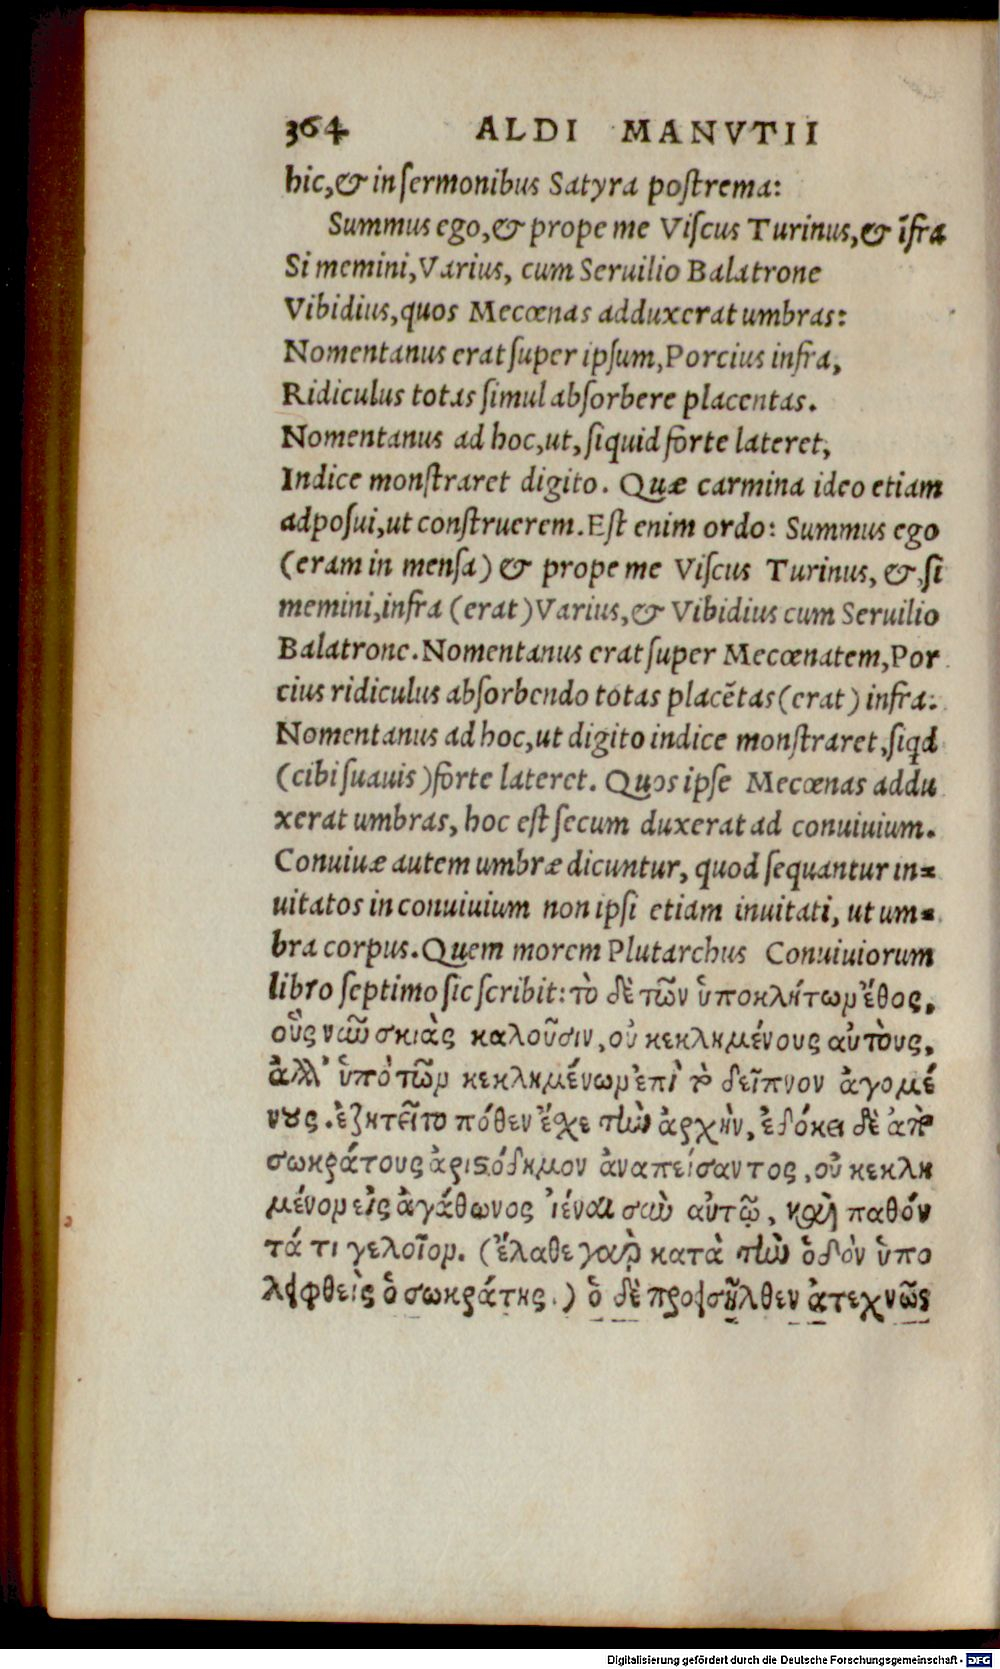 364 ALDI MANVTII
hic, & in sermonibus Satyra postrema:
Summus ego, & prope me Viscus Turinus, & īfra
Si memini, Varius, cum Seruilio Balatrone
Vibidius, quos Mecœnas adduxerat umbras:
Nomentanus erat super ipsum, Porcius infra,
Ridiculus totas simul absorbere placentas.
Nomentanus ad hoc, ut, siquid forte lateret,
Indice monstraret digito. Quæ carmina ideo etiam
adposui, ut construerem. Est enim ordo: Summus ego
(eram in mensa) & prope me Viscus Turinus, &, si
memini, infra (erat) Varius, & Vibidius cum Seruilio
Balatrone. Nomentanus erat super Mecœnatem, Por
cius ridiculus absorbendo totas placẽtas (erat) infra:
Nomentanus ad hoc, ut digito indice monstraret, siqd
(cibi suauis) forte lateret. Quos ipse Mecœnas addu
xerat umbras, hoc est secum duxerat ad conuiuium.
Conuiuæ autem umbræ dicuntur, quod sequantur in-
uitatos in conuiuium non ipsi etiam inuitati, ut um-
bra corpus. Quem morem Plutarchus Conuiuiorum
libro septimo sic scribit: τὸ δὲ τῶν ὑποκλήτωρ ἔθος,
οὓς νῦν σκιὰς καλοῦσιν, οὐ κεκλημένους αὐτοὺς,
ἀλλ' ὑπὸ τῶν κεκλημένων ἐπὶ τὸ δεῖπνον ἀγομέ
νους. ἐζητεῖτο πόθεν ἔσχε τὴν ἀρχὴν, ἐδόκει δὲ ἀπὸ
σωκράτους ἀριστόδημον ἀναπείσαντος, οὐ κεκλη
μένον εἰς ἀγάθωνος ἰέναι σὺν αὐτῷ, καὶ παθόν
τά τι γελοῖον. (ἔλαθε γὰρ κατὰ τὴν ὁδὸν ὑπο
λειφθεὶς ὁ σωκράτης.) ὁ δὲ προεισῆλθεν ἀτεχνῶς
Digitalisierung gefördert durch die Deutsche Forschungsgemeinschaft - DFG